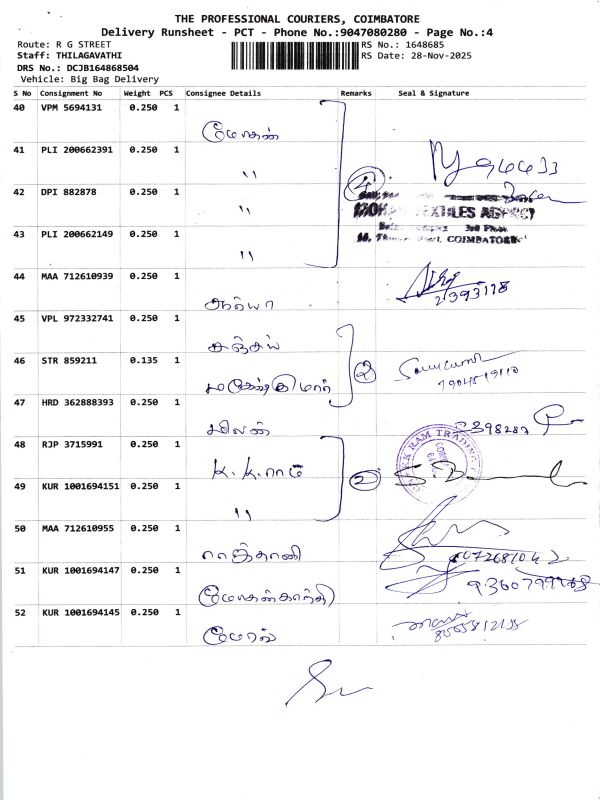 THE PROFESSIONAL COURIERS, COIMBATORE
Delivery Runsheet - PCT - Phone No.:9047080280 - Page No.:4
Route: R G STREET
RS No.: 1648685
Staff: THILAGAVATHI
RS Date: 28-Nov-2025
DRS No.: DCJB164868504
Vehicle: Big Bag Delivery
S No Consignment No Weight PCS Consignee Details Remarks Seal & Signature
40 VPM 5694131 0.250 1 மோகன்
41 PLI 200662391 0.250 1 "
42 DPI 882878 0.250 1 "
4
TEXTILES AGENCY
COIMBATORE
43 PLI 200662149 0.250 1 "
44 MAA 712610939 0.250 1 ஆர்யா
45 VPL 972332741 0.250 1 சஞ்சய்
46 STR 859211 0.135 1 மகேஷ்குமார் 2
47 HRD 362888393 0.250 1 மிலன்
48 RJP 3715991 0.250 1 கே.கே.ராம் 2
RAM TRADING
49 KUR 1001694151 0.250 1 "
50 MAA 712610955 0.250 1
51 KUR 1001694147 0.250 1 மோகன்காந்தி
52 KUR 1001694145 0.250 1